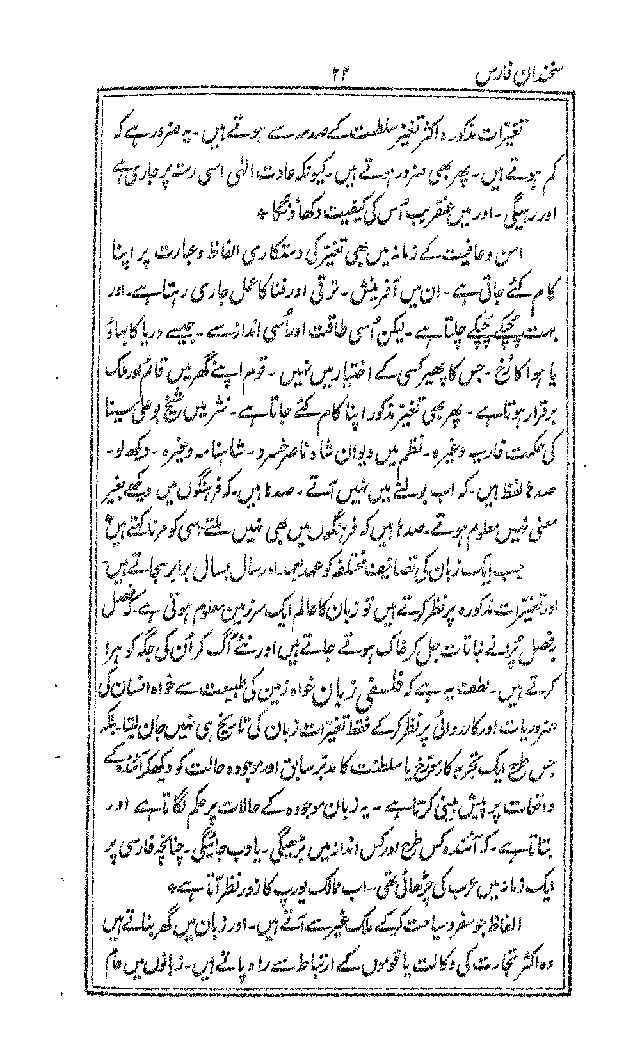 سخندان فارس ۲۴
تغیّرات مذکورہ اکثر تغیّر سلطنت کے صدمہ سے ہوتے ہیں۔ یہ ضرور ہے کہ
کم ہوتے ہیں۔ پھر بھی ضرور ہوتے ہیں۔ کیونکہ عادت الٰہی اسی رستہ پر جاری ہے
اور رہیگی۔ اور میں عنقریب اُس کی کیفیت دکھاؤنگا *
امن و عافیت کے زمانہ میں بھی تغیّر کی دستکاری الفاظ و عبارت پر اپنا
کام کئے جاتی ہے۔ ان میں آفرینش۔ ترقی اور فنا کا عمل جاری رہتا ہے۔ اور
بہت چپکے چپکے چلتا ہے۔ لیکن اُسی طاقت اور اُسی انداز سے۔ جیسے دریا کا بہاؤ
یا ہوا کا رُخ۔ جس کا پھیر کسی کے اختیار میں نہیں۔ قوم اپنے گھر میں قائم اور ملک
برقرار ہوتا ہے۔ پھر بھی تغیّر مذکور اپنا کام کئے جاتا ہے۔ نثر میں شیخ بوعلی سینا
کی حکمت فارسیہ وغیرہ۔ نظم میں دیوان شاہ ناصر خسرو۔ شاہنامہ وغیرہ۔ دیکھ لو۔
صدہا لفظ ہیں۔ کہ اب بولنے میں نہیں آتے۔ صدہا ہیں۔ کہ فرہنگوں میں دیکھے بغیر
معنی نہیں معلوم ہوتے۔ صدہا ہیں کہ فرہنگوں میں بھی نہیں ملتے۔ اسی کو مرنا کہتے ہیں *
جب ایک زبان کی تصانیف مختلفہ کو عہد بعہد اور سال بسال برابر سجاتے ہیں۔
اور تغیّرات مذکورہ پر نظر کرتے ہیں تو زبان کا عالم ایک سرزمین معلوم ہوتی ہے۔ کہ فصل
بفصل پُرانے نباتات جل کر خاک ہوتے جاتے ہیں اور نئے اُگ کر اُن کی جگہ کو ہرا
کرتے ہیں۔ لطف یہ ہے کہ فلسفی زبان خواہ زمین کی طبیعت سے خواہ انسان کی
ضروریات اور کارروائی پر نظر کر کے فقط تغیّرات زبان کی تاریخ ہی نہیں جان لیتا۔ بلکہ
جس طرح ایک تجربہ کار مورّخ یا سلطنت کا مدبّر سابق اور موجودہ حالت کو دیکھکر آئندہ کے
واقعات پر پیش بینی کرتا ہے۔ یہ زبان موجودہ کے حالات پر حکم لگاتا ہے اور
بتاتا ہے۔ کہ آئندہ کس طرح اور کس انداز میں بڑھیگی۔ یا دب جائیگی۔ چنانچہ فارسی پر
ایک زمانہ میں عرب کی چڑھائی تھی۔ اب ممالک یورپ کا زور نظر آتا ہے *
الفاظ جو سفر و سیاحت کر کے ملک غیر سے آتے ہیں۔ اور زبان میں گھر بناتے ہیں
وہ اکثر تجارت کی وکالت یا قوموں کے ارتباط سے راہ پاتے ہیں۔ زبانوں میں عام